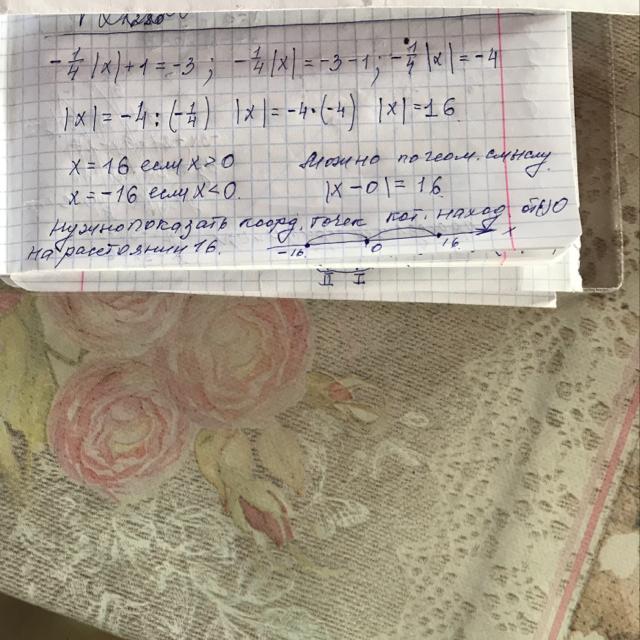 -1/4 |x| + 1 = -3 ; -1/4 |x| = -3 - 1 ; -1/4 |x| = -4
|x| = -4 : (-1/4) |x| = -4 · (-4) |x| = 16
x = 16 если x > 0 Можно по геом. смыслу
x = -16 если x < 0. |x - 0| = 16
Нужно показать коорд. точек кот. наход. от (·) 0
на расстоянии 16. -16 0 16 x
II I